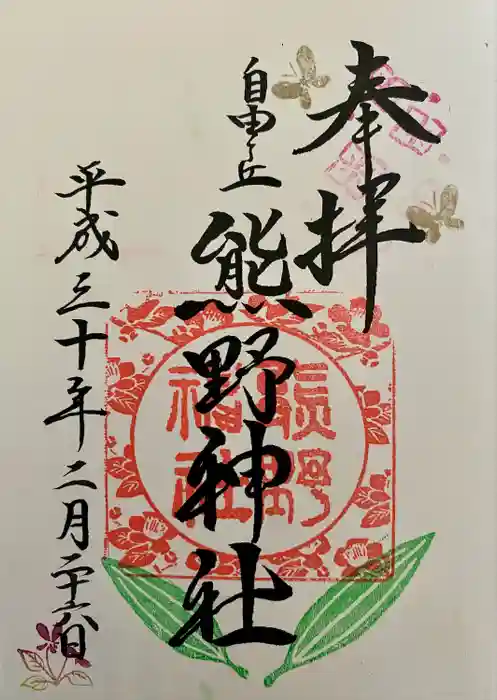 奉拝
自由ヶ丘
熊野神社
平成三十年二月二十六日